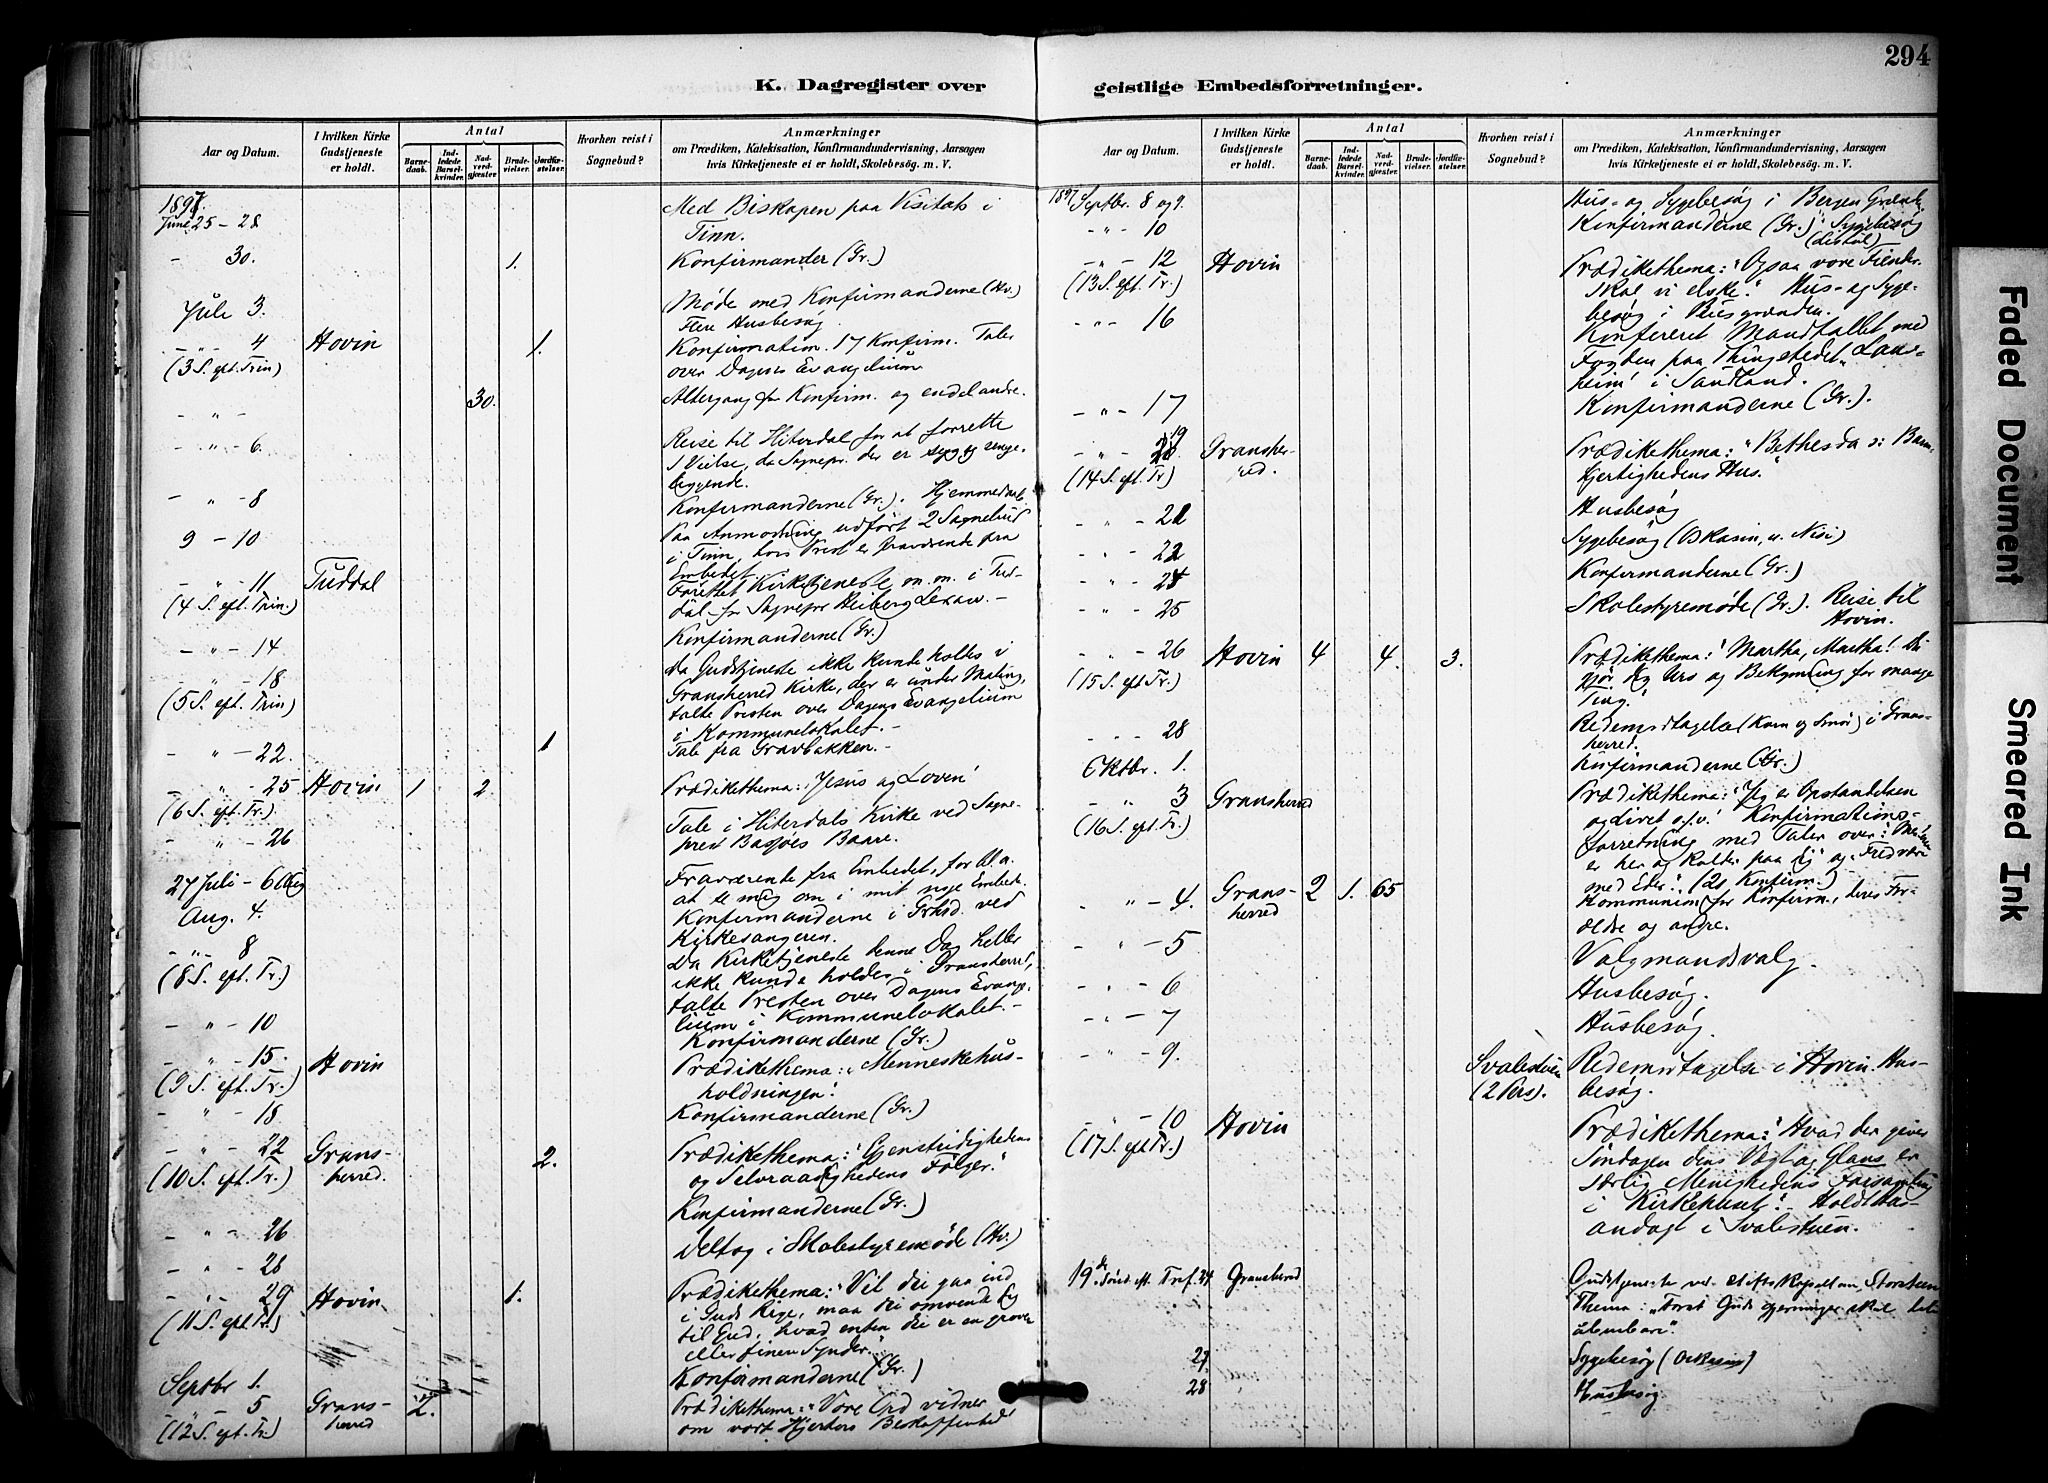 294
K. Dagregister over
geistlige Embedsforretninger.
Aar og Datum.
I hvilken Kirke Gudstjeneste er holdt.
Antal
Barnedaab.
Indledede Barselkvinder.
Nadverdgjæster
Brudevielser.
Jordfæstelser.
Hvorhen reist i Sognebud?
Anmærkninger
om Prædiken, Katekisation, Konfirmandundervisning, Aarsagen
hvis Kirketjeneste ei er holdt, Skolebesög. m. V.
1897.
Juni 25 - 28
Med Biskopen paa Visitats i
Tinn.
- 30.
1.
Konfirmander (Gr.)
Juli 3.
Møde med Konfirmanderne (Hv.)
Flere Husbesøg
- " - 4
Hovin
1.
Konfirmation. 17 Konfirm. Tale
(3 S. eft. Trin)
over Dagens Evangelium
- " -
30.
Altergang for Konfirm. og endel andre.
- " - 6.
Reise til Hiterdal for at forrette
1 Vielse, da Sognepr. der er syg og senge-
liggende.
- " - 8
Konfirmanderne (Gr.).
9 - 10
Paa Anmodning udført 2 Sognebud
i Tinn, hvis Prest er fraværende fra
Embedet.
- " - 11
Tuddal
Forrettet Kirketjeneste m. m. i Tud-
(4 S. eft. Trin.)
dal for Sognepr Heiberg Lexaw. -
- " - 14
Konfirmanderne (Gr.)
- " - 18
Da Gudstjeneste ikke kunde holdes i
(5 S. eft. Trin)
Gransherred Kirke, der er under Maling,
talte Presten over Dagens Evangelium
i Kommunelokalet. -
- " - 22.
1
Tale fra Gravbakken. -
- " - 25
Hovin
1
2.
Prædikethema: "Jesus og Loven"
(6 S. eft. Tr.)
- " - 26
Tale i Hiterdals Kirke ved Sogne-
prest Basjöes Baare.
27 Juli - 6 Aug
Fraværende fra Embedet, for bl. a.
at se mig om i mit nye Embede.
Aug. 4.
Konfirmanderne i Grhrd. ved
Kirkesangeren.
- " - 8
Da Kirketjeneste denne Dag heller
(8 S. eft. Tr.)
ikke kunde holdes i Gransherred,
talte Presten over Dagens Evange-
lium i Kommunelokalet. -
- " - 10
Konfirmanderne (Gr.)
- " - 15.
Hovin
Prædikethema: "Menneskehus-
(9 S. eft. Tr.)
holdningen".
- " - 18
Konfirmanderne (Gr.)
- " - 22
Grans-
herred.
2.
Prædikethema: "Gjenstridighedens
(10 S. eft. Tr.)
og Selvraadighedens Følger."
- " - 26
Konfirmanderne (Gr.)
- " - 28
Deltog i Skolestyremöde (Hv.)
- " - 29
Hovin
1.
Prædikethema: "Vil du gaa ind
(11 S. eft. Tr.)
i Guds Rige, maa du omvende dig
til Gud, hvad enten du er en grov
eller fin Synder."
Septbr 1.
Konfirmanderne (Gr.)
- " - 5
Grans-
herred
2.
Prædikethema: "Vore Ord vidner
(12 S. eft. Tr.)
om vort Hjertes Beskaffenhed"
Aar og Datum.
I hvilken Kirke Gudstjeneste er holdt.
Antal
Barnedaab.
Indledede Barselkvinder.
Nadverdgjæster
Brudevielser.
Jordfæstelser.
Hvorhen reist i Sognebud?
Anmærkninger
om Prædiken, Katekisation, Konfirmandundervisning, Aarsagen
hvis Kirketjeneste ei er holdt, Skolebesög. m. V.
1897 Septbr. 8 og 9.
Hus- og Sygebesøg i Bergen Grænd.
- " - 10
Konfirmanderne (Gr.) Sygebesøg
- " - 12
Hovin
Prædikethema: "Ogsaa vore Fiender
(13 S. eft. Tr.)
skal vi elske." Hus- og Syge-
besøg i
- " - 16
Konfereret Mandtallet med
Fogden paa Thingstedet
heim i Sauland.
- " - 17
Konfirmanderne (Gr.).
- " - 19
Gransher-
red.
Prædikethema: "Bethesda ɔ: Barm-
(14 S. eft. Tr)
hjertighedens Hus."
- " - 21
Husbesøg
- " - 22
Sygebesøg
- " - 24
Konfirmanderne (Gr.)
- " - 25
Skolestyremøde (Gr.). Reise til
Hovin.
- " - 26
Hovin
4
4.
3.
Prædikethema: "Martha, Martha! Du
(15 S. eft Tr.)
gjør dig Uro og Bekymring for mange
Ting".
- " - 28
Redemodtagelse (Korn og Smør) i Grans-
herred.
Oktbr. 1.
Konfirmanderne (Gr.)
- " 3
Gransherred
Prædikethema: "Jeg er Opstandelsen
(16 S. eft. Tr.)
og Livet o.s.v." Konfirmations-
forretning med Taler over: "Mesteren
er her og kalder paa dig" og "Fred være
med Eder". (21 Konfirm.)
" - 4.
Grans-
herred
2
1.
65
Kommunion for Konfirm., deres For-
ældre og andre.
- " - 5
Valgmandsvalg.
- " - 6
Husbesøg.
- " - 7
Husbesøg.
- " - 9.
Svalestuen
(2 Pers).
Redemodtagelse i Hovin. Hus-
besøg.
" - 10
Hovin
Prædikethema: "Hvad der giver
(17 S. eft Tr.)
Søndagen dens Vægt og Glans er
særlig Menighedens Forsamling
i Kirkehuset". - Holdt Hus-
andagt i Svalestuen.
19de Sönd. eft. Tref. 24
Gransherred
Gudstjeneste ved stiftskapellan Storsteen
Thema: "Forat Guds gjerninger skal bli
åbenbare".
27
Sygebesøg
28
Husbesøg.
Faded Document
Smeared Ink